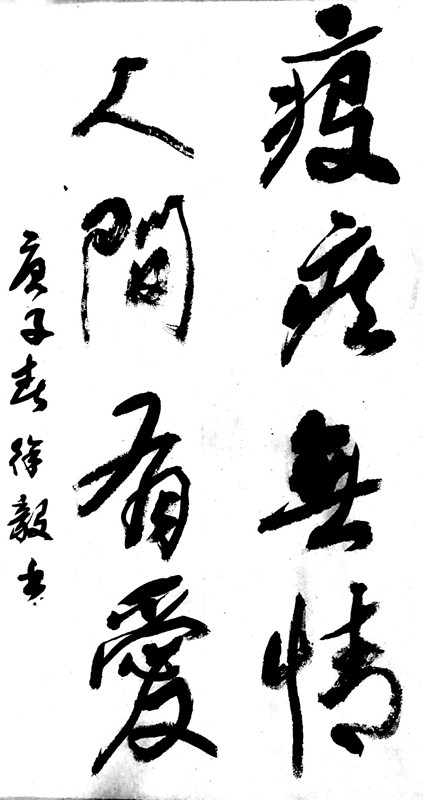 疫疾無情
人間有愛
庚子春徐毅书